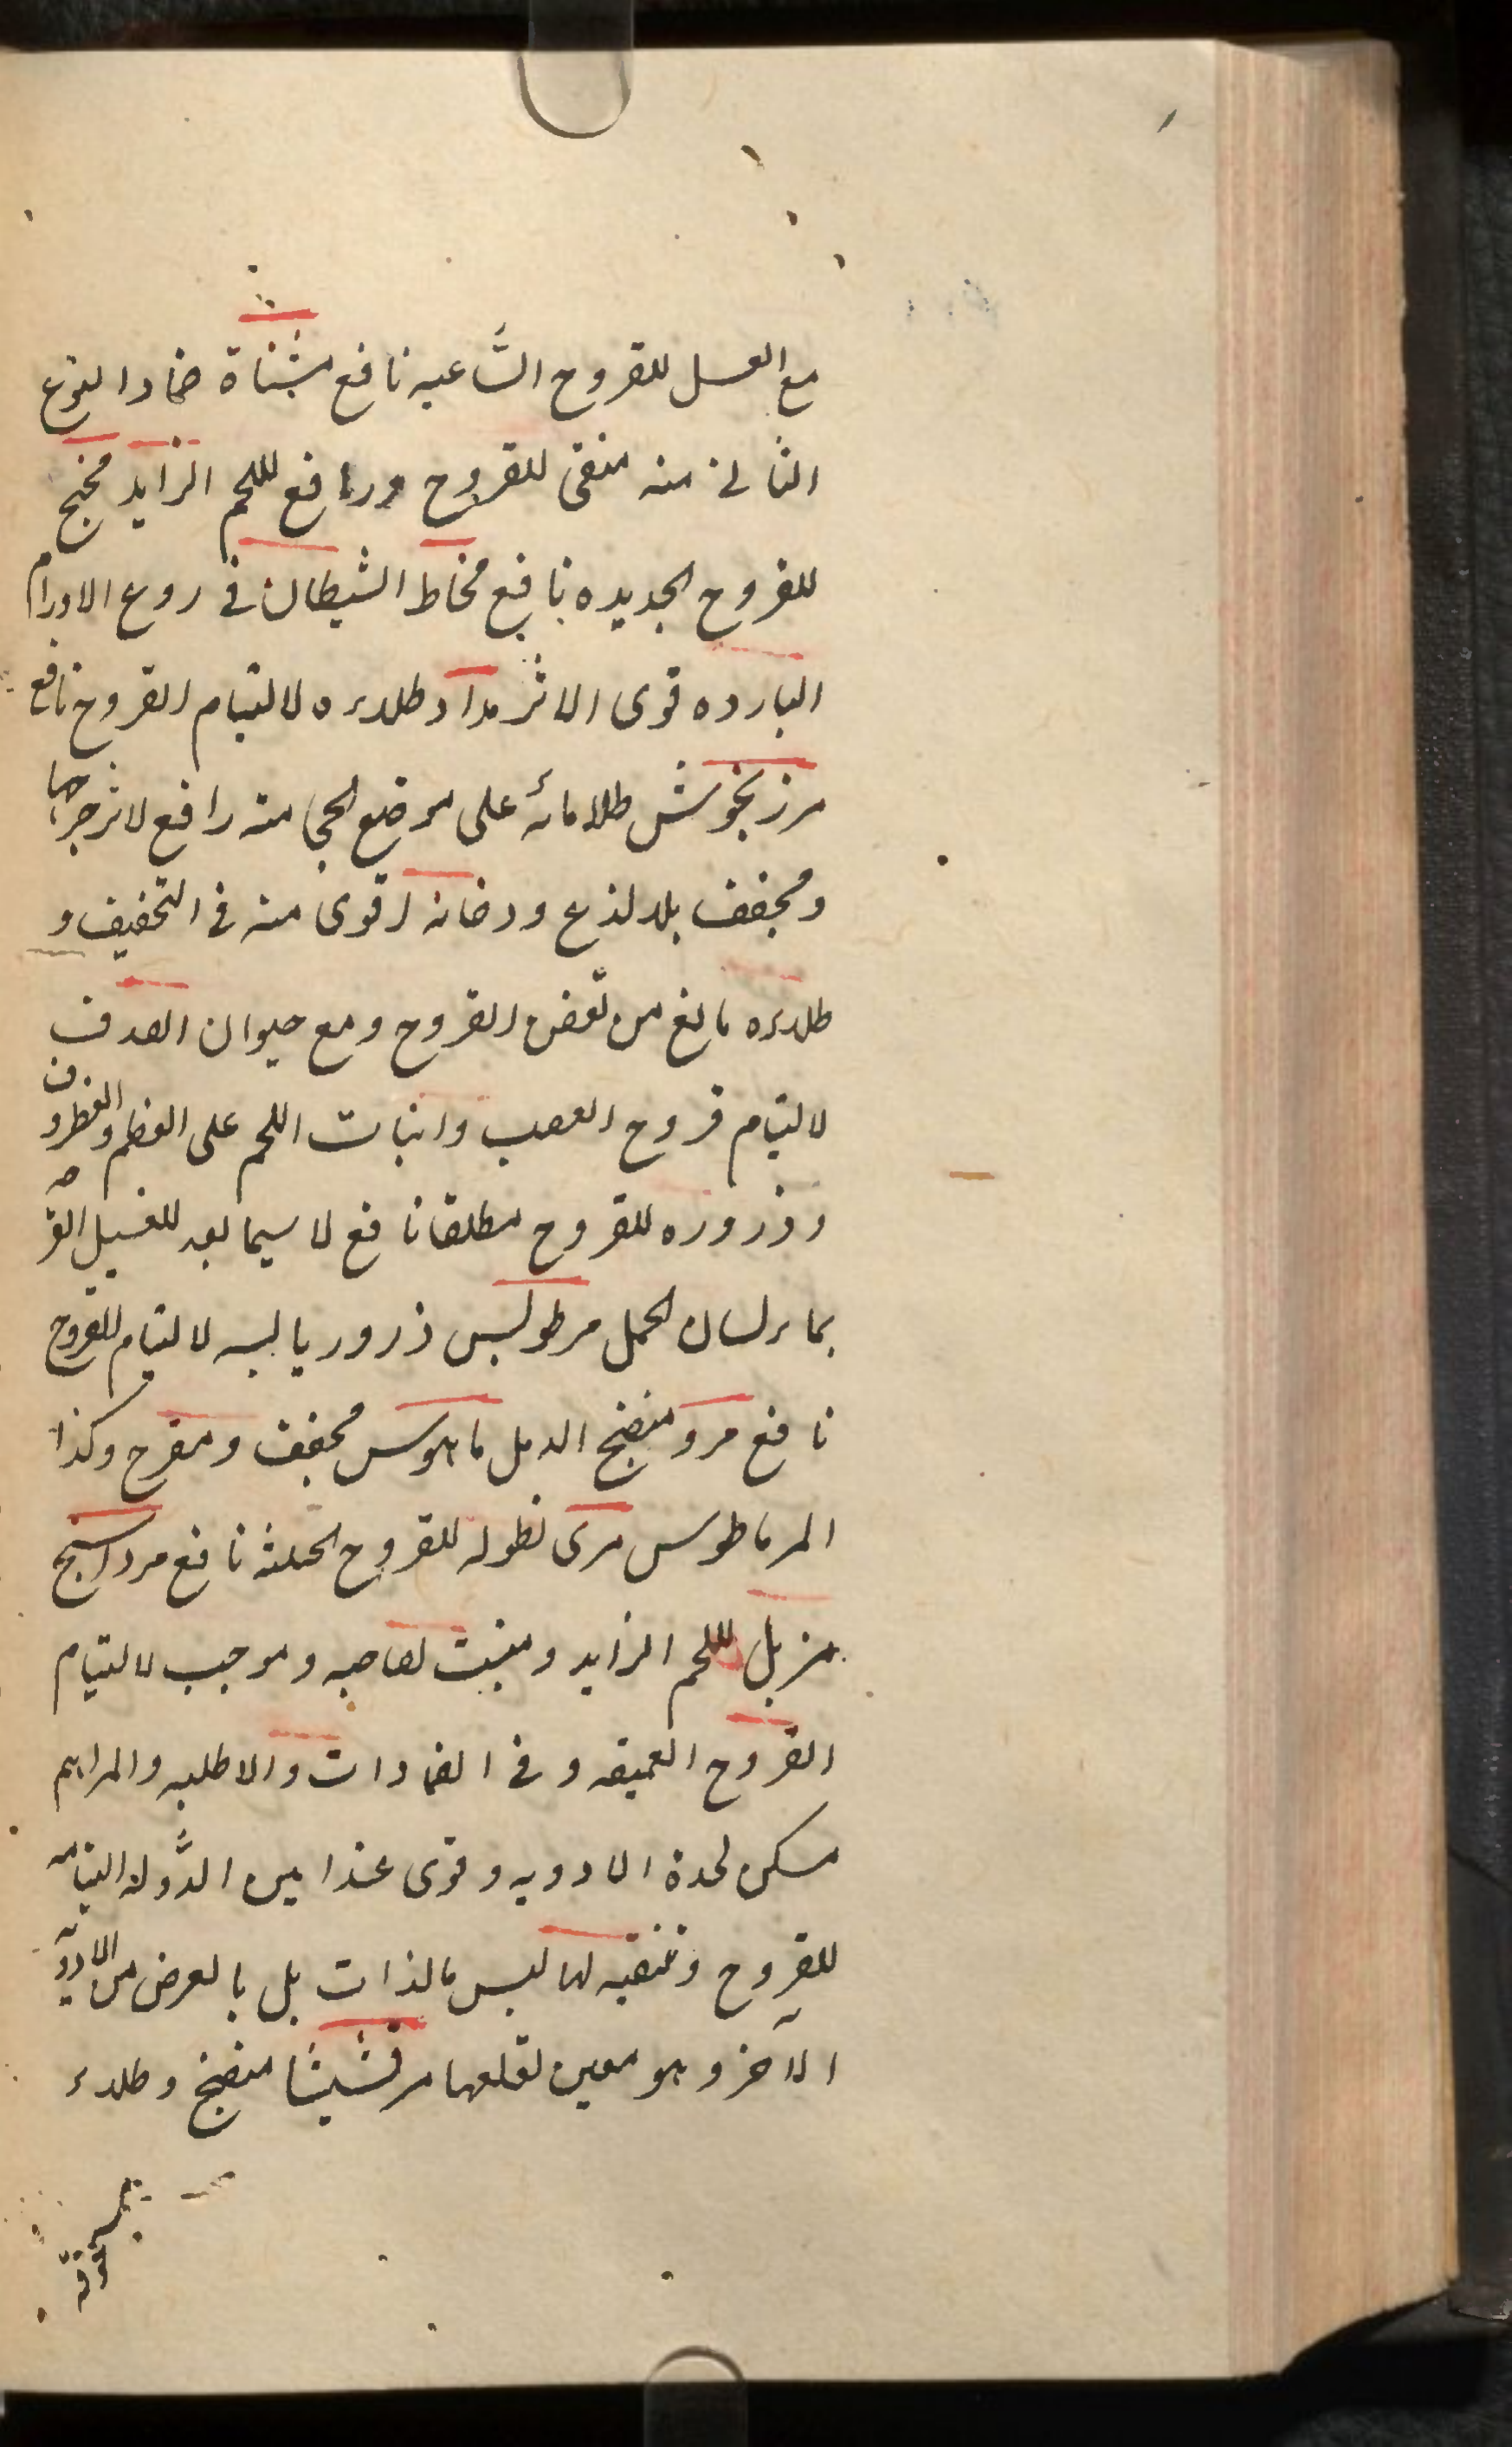 مع العسل للقروح الساعيه نافع مثناة ضمادا لنوع
الثانى منه منقى للقروح ورافع لللحم الزايد مخيخ
للقروح الجديده نافع مخاط الشيطان فى ردع الاورام
البارده قوى الاثر مداد طلاءه لالتيام القروح نافع
مرزنجوش طلا مائه على موضع الحجامته رافع لاثر جراحها
ومجفف بلا لذع ودخانه اقوى منه فى التجفيف و
طلاءه مانع من تعفن القروح ومع حيوان الصدف
لالتيام قروح العصب وانبات اللحم على العظم والغضروف
وذروره للقروح مطلقا نافع لا سيما بعد للغسيل القرحه
بماء لسان الحمل مرطولس ذرور يابسه لالتيام للقروح
نافع مرو منضج الدمل ماهوس مجفف ومقرح وكذا
المرماطوس مرى نطوله للقروح الخبيثه نافع مرداسنج
مزيل لللحم الزايد ومنبت لصاحبه وموجب لالتيام
القروح العميقه وفى الضمادات والاطليه والمراهم
مسكن لحدة الادويه وقوى عند امين الدوله التيامه
للقروح وتنقيه لها ليس بالذات بل بالعرض من الادويه
الآخر وهو معين لقلعها مرقشيثا منضج وطلاء